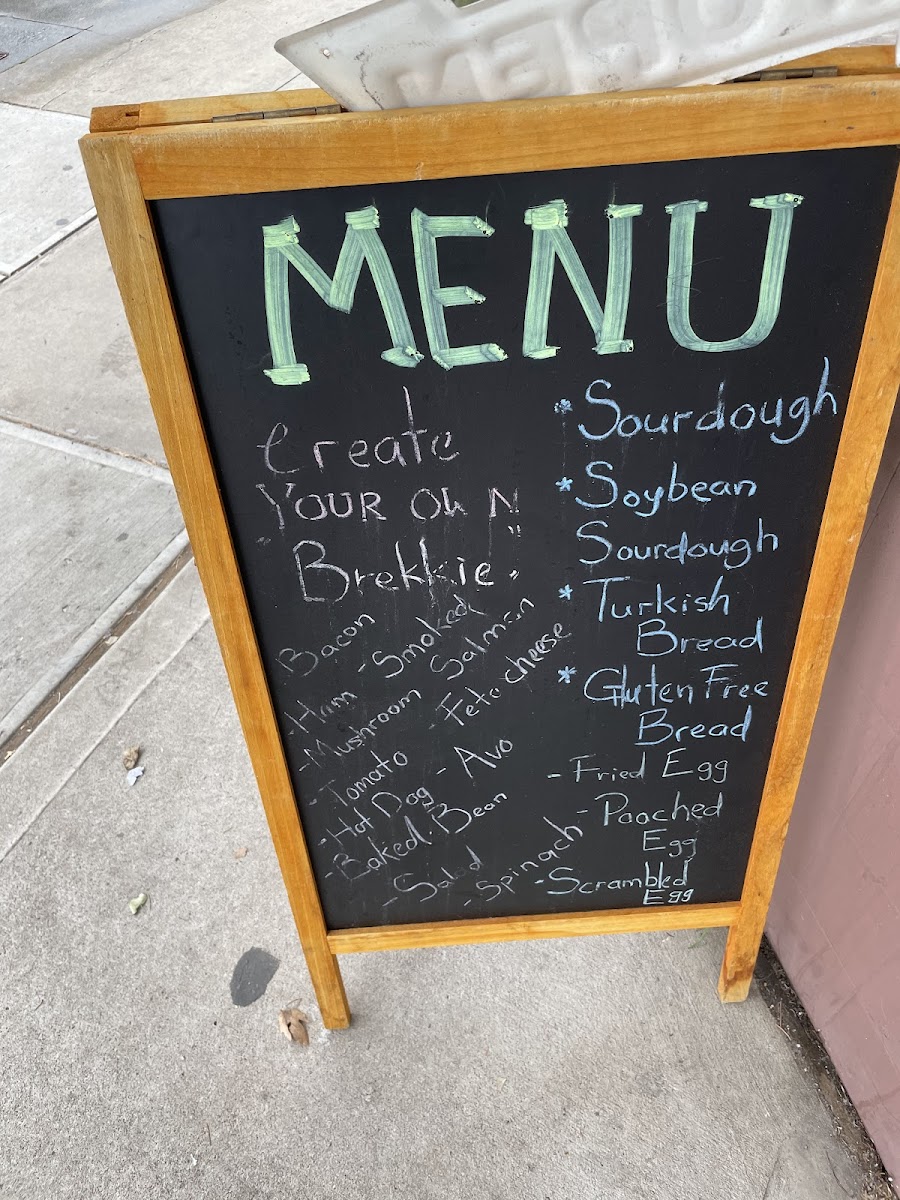 MENU
Create
"YOUR OWN
Brekkie."
Bacon
- Smoked
Salmon
- Ham
- Mushroom
- Feta cheese
- Tomato
- Avo
- Hot Dog
- Baked Bean
- Salad
- Spinach
* Sourdough
* Soybean
Sourdough
* Turkish
Bread
* Gluten Free
Bread
- Fried Egg
- Poached
Egg
- Scrambled
Egg